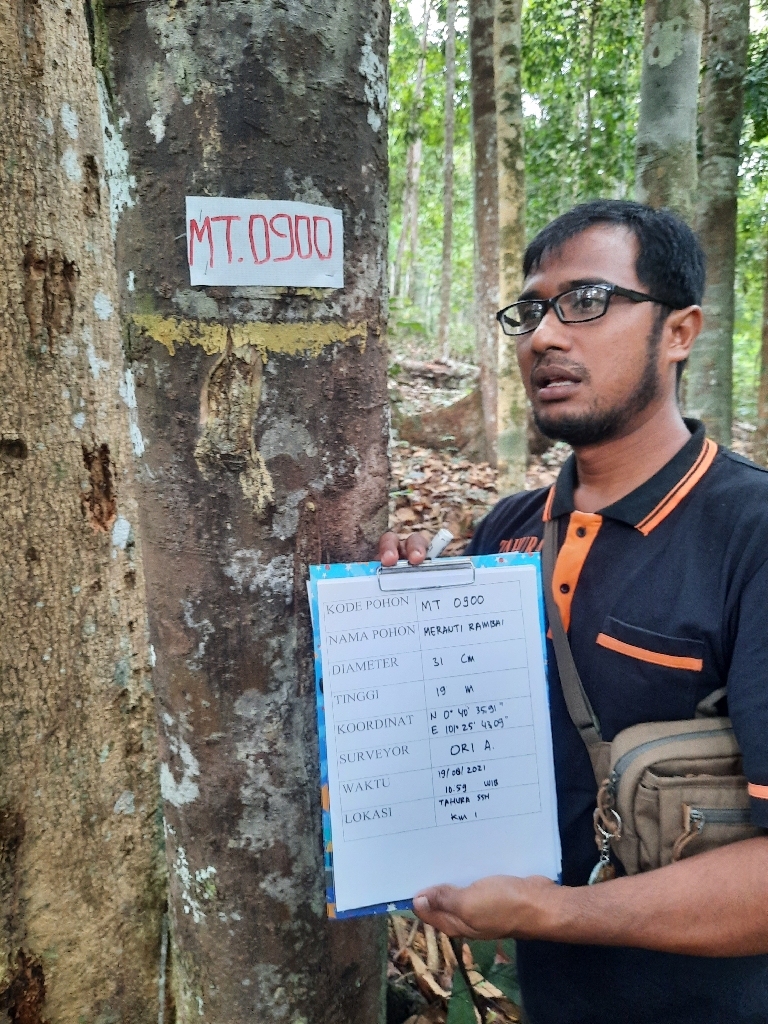 MT.0900
KODE POHON MT 0900
NAMA POHON MERANTI RAMBAI
DIAMETER 31 Cm
TINGGI 19 m
KOORDINAT N 0° 40' 35.91"
E 101° 25' 43.09"
SURVEYOR ORI A.
WAKTU 19/08/2021
10.59 WIB
LOKASI TAHURA SSH
Km 1